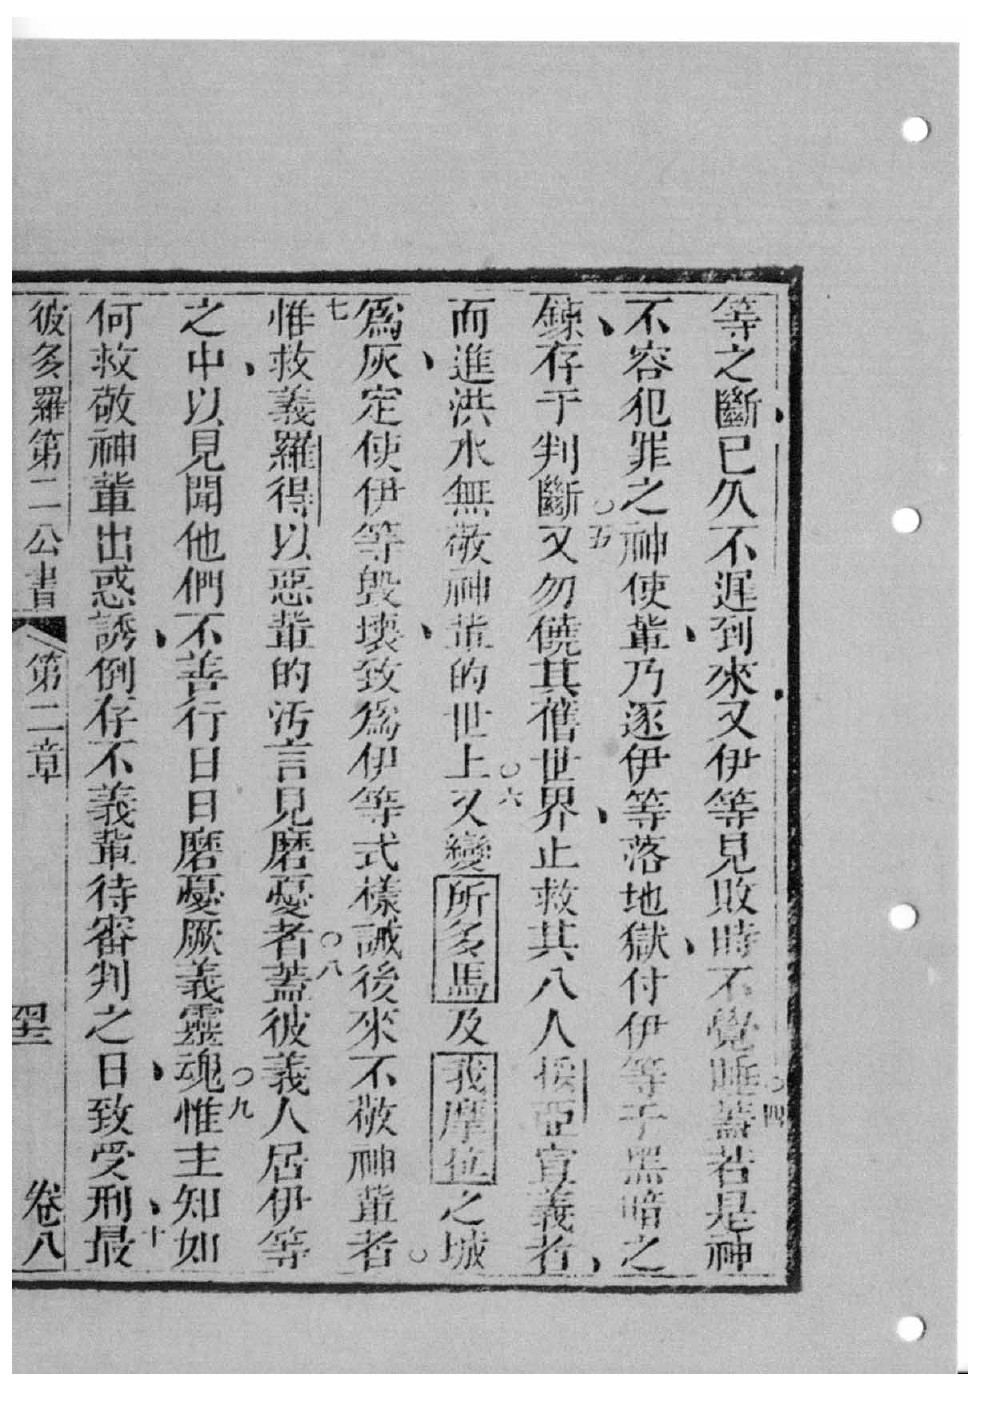 等之斷已久不遲到來又伊等見敗時不覺睡○四蓋若是神
不容犯罪之神使輩乃逐伊等落地獄付伊等于黑暗之
鍊存于判斷○五又勿饒其舊世界止救其八人挼亞宣義者
而進洪水無敬神輩的世上○六又變所多馬及我摩拉之城
爲灰定使伊等毀壞致爲伊等式樣誡後來不敬神輩者○
七惟救義羅得以惡輩的污言見磨憂者○八蓋彼義人居伊等
之中以見聞他們不善行日日磨憂厥義靈魂○九惟主知如
何救敬神輩出惑誘倒存不義輩待審判之日致受刑十最
彼多羅第二公書 第二章 卷八